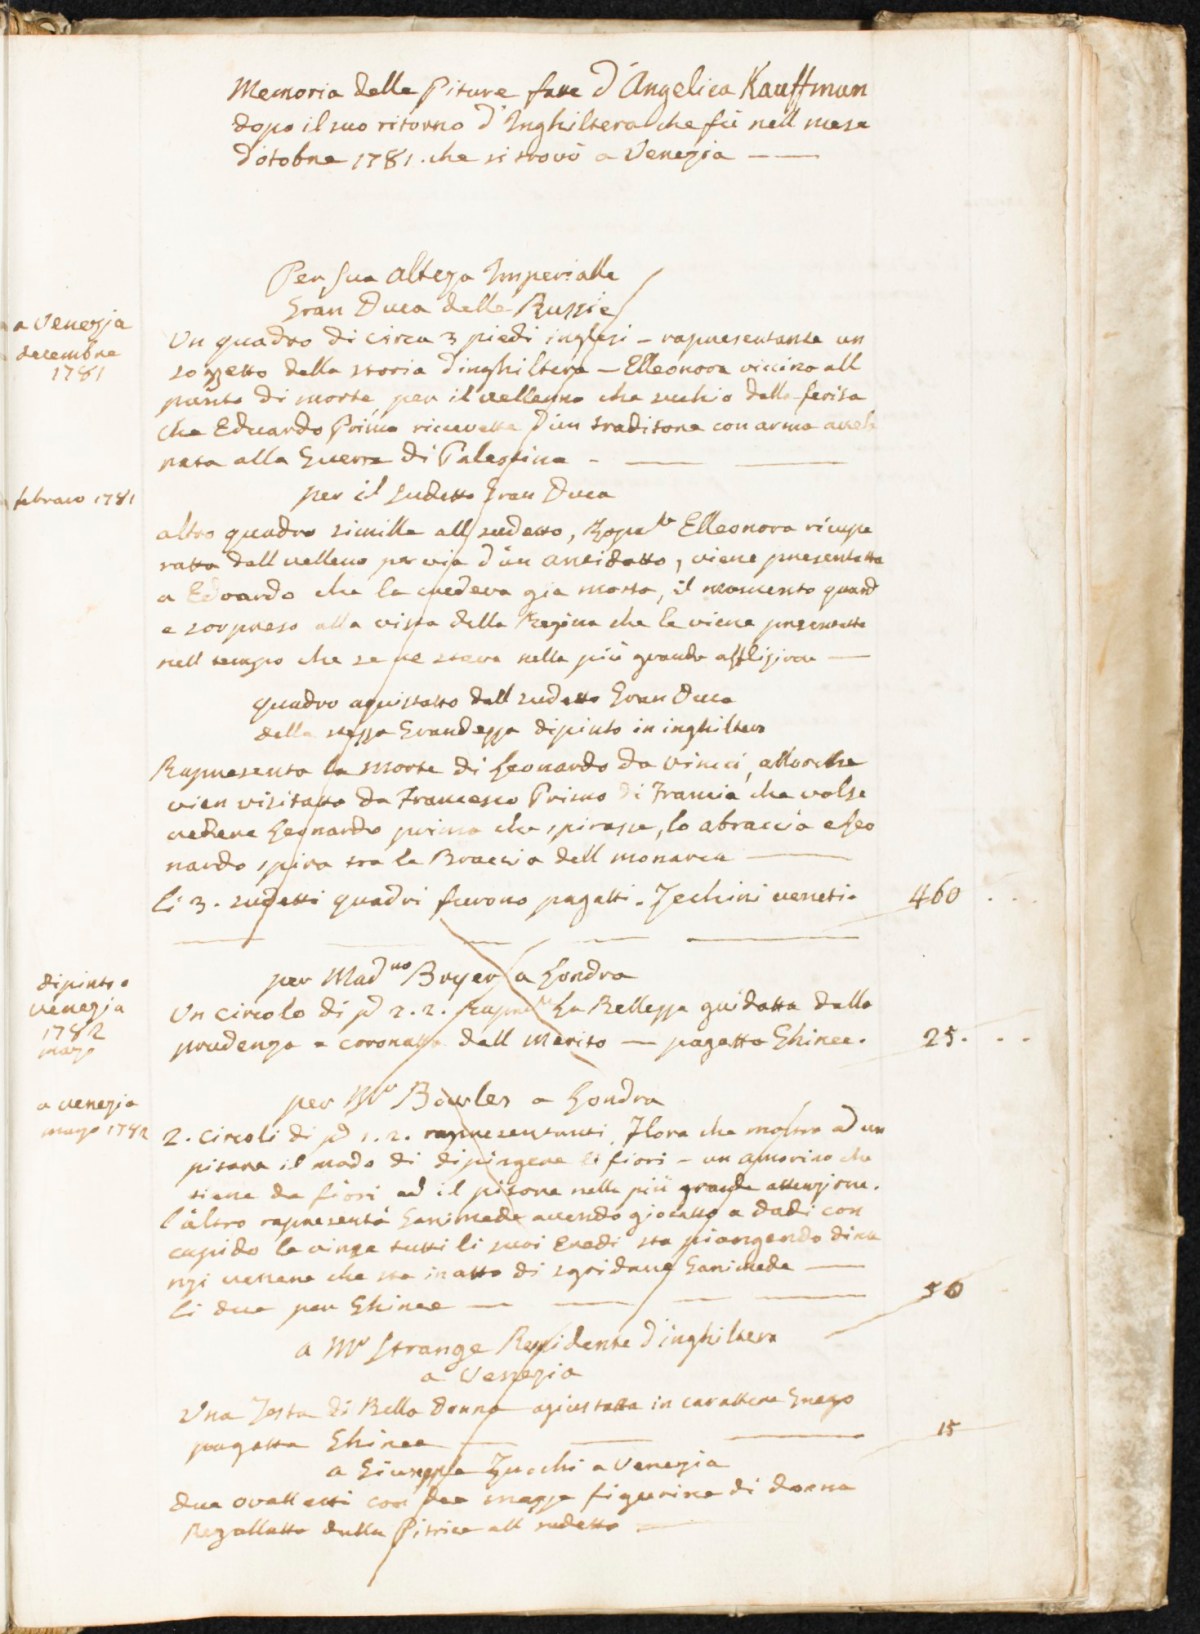 Memoria delle Piture fate d'Angelica Kauffman
dopo il suo ritorno d'Inghiltera che fù nell mese
d'otobre 1781. che si trovò a Venezia
Per Sua Alteza Imperialle
Gran Duca delle Russie
a Venezia
decembre
1781
Un quadro di circa 3 piedi inglesi – rapresentante un
sozzetto della storia d'inghiltera – Elleonora viccino all
punto di morte per il vellenno che suchio dalla ferita
che Eduardo Primo ricevette d'un traditore con arma avele
nata alla Guerra di Palestina –
febraro 1781
per il sudetto Gran Duca
altro quadro simille all sudetto, Rapre.te Elleonora ricupe
ratta dall velleno per via d'un antidotto, viene presentatta
a Edoardo che la credeva gia morta, il momento quand
e sorpreso alla vista della Regina che le viene presentatta
nell tempo che se ne stava nella più grande afflizione
quadro aquistatto dall sudetto Gran Duca
della stezza Grandezza dipinto in inghiltera
Rapresenta la morte di Leonardo da Vincci, allorche
vien visitatto da Francesco Primo di Francia che volse
vedere Leonardo prima che spirasse, lo abraccia e Leo
nardo spira tra le Braccia dell monarca
li 3. sudetti quadri furono pagatti. Zechini veneti. 460
dipinto a
Venezia
1782
marzo
per Mad.mo Bryer a Londra
Un circolo di pd 2. 2. Rapre.te La Bellezza guidatta dalla
prudenza e coronatta dall Merito — pagatto Ghinee. 25.
a venezia
marzo 1782
per Mr Bowles a Londra
2. circoli di pd 1. 2. rapresentanti, Flora che mostra ad un
pitore il modo di dipingere li fiori – un amorino che
tiene de fiori ad il pitore nella più grande attenzione.
l'altro rapresenta Ganimede avendo giocatto a dadi con
cupido le vinse tutti li suoi Dadi sta piangendo dina
nzi venere che sta in atto di sgridare Ganimede
li due per Ghinee 50
a Mr Strange Residente d'inghiltera
a Venezia
Una Testa di Bella donna agiustatta in carattere Grego
pagatta Ghinee 15
a Giuseppe Zucchi a Venezia
due ovalletti con due mezze figurine di donna
Regallatto dalla Pitrice all sudetto